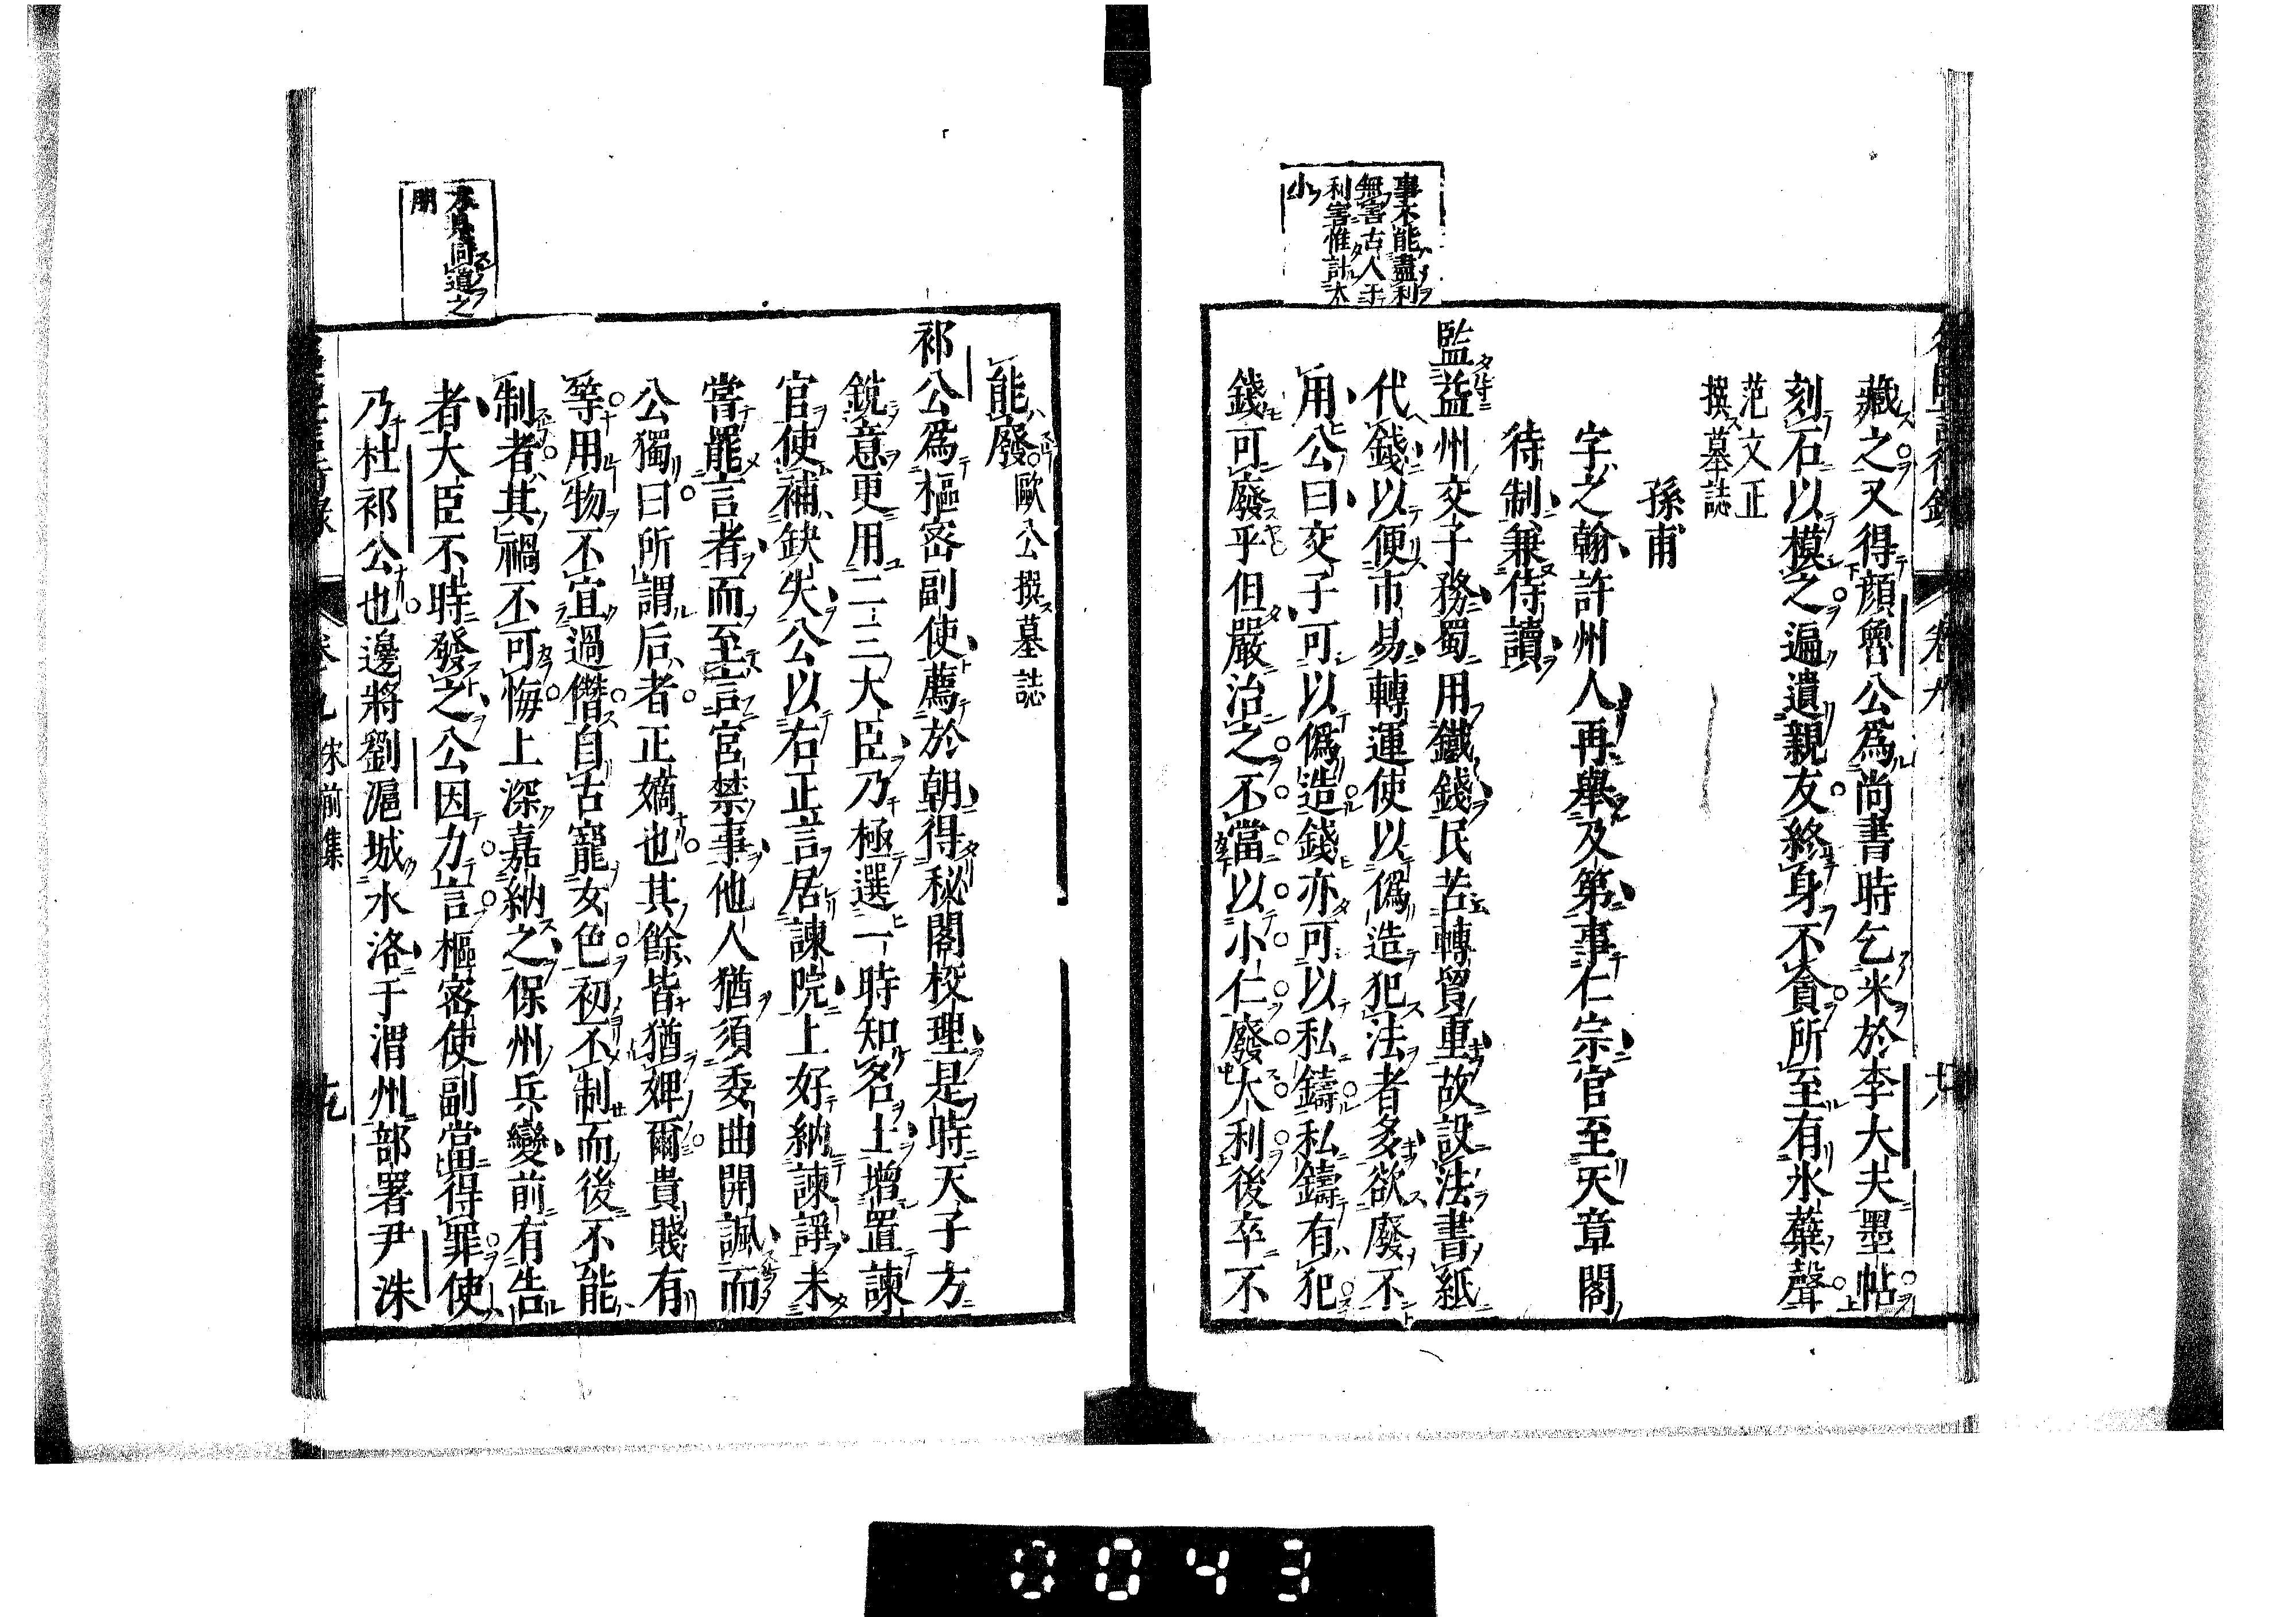 事不能盡利
無害古人于
利害惟計大
小
藏之又得顏魯公爲尚書時乞米於李大夫墨帖
刻石以模之遍遺親友終身不貪所至有氷蘗聲
范文正
撰墓誌
孫甫
字之翰許州人再舉及第事仁宗官至天章閣
待制兼侍讀
監益州交子務蜀用鐵錢民苦轉貿重故設法書紙
代錢以便市易轉運使以僞造犯法者多欲廢不
用公曰交子可以僞造錢亦可以私鑄私鑄有犯
錢可廢乎但嚴治之不當以小仁廢大利後卒不
能廢歐公撰墓誌
祁公爲樞密副使薦於朝得秘閣校理是時天子方
銳意更用二三大臣乃極選一時知名士增置諫
官使補缺失公以右正言居諫院上好納諫諍未
嘗罷言者而至言宮禁事他人猶須委曲開諷而
公獨曰所謂后者正嫡也其餘皆猶婢爾貴賤有
等用物不宜過僭自古寵女色初不制而後不能
制者其禍不可悔上深嘉納之保州兵變前有告
者大臣不時發之公因力言樞密使副當得罪使
乃杜祁公也邊將劉滬城水洛于渭州部署尹洙
見同道之
朋
卷九 宋前集